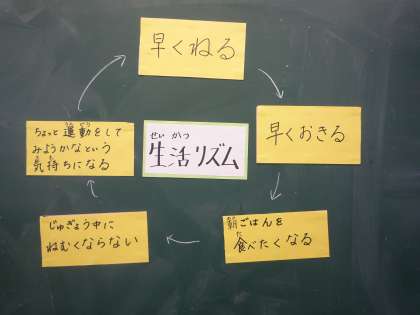 早くねる
早くおきる
朝ごはんを
食べたくなる
じゅぎょう中に
ねむくならない
ちょっと運動をして
みようかなという
気持ちになる
せい かつ
生活リズム